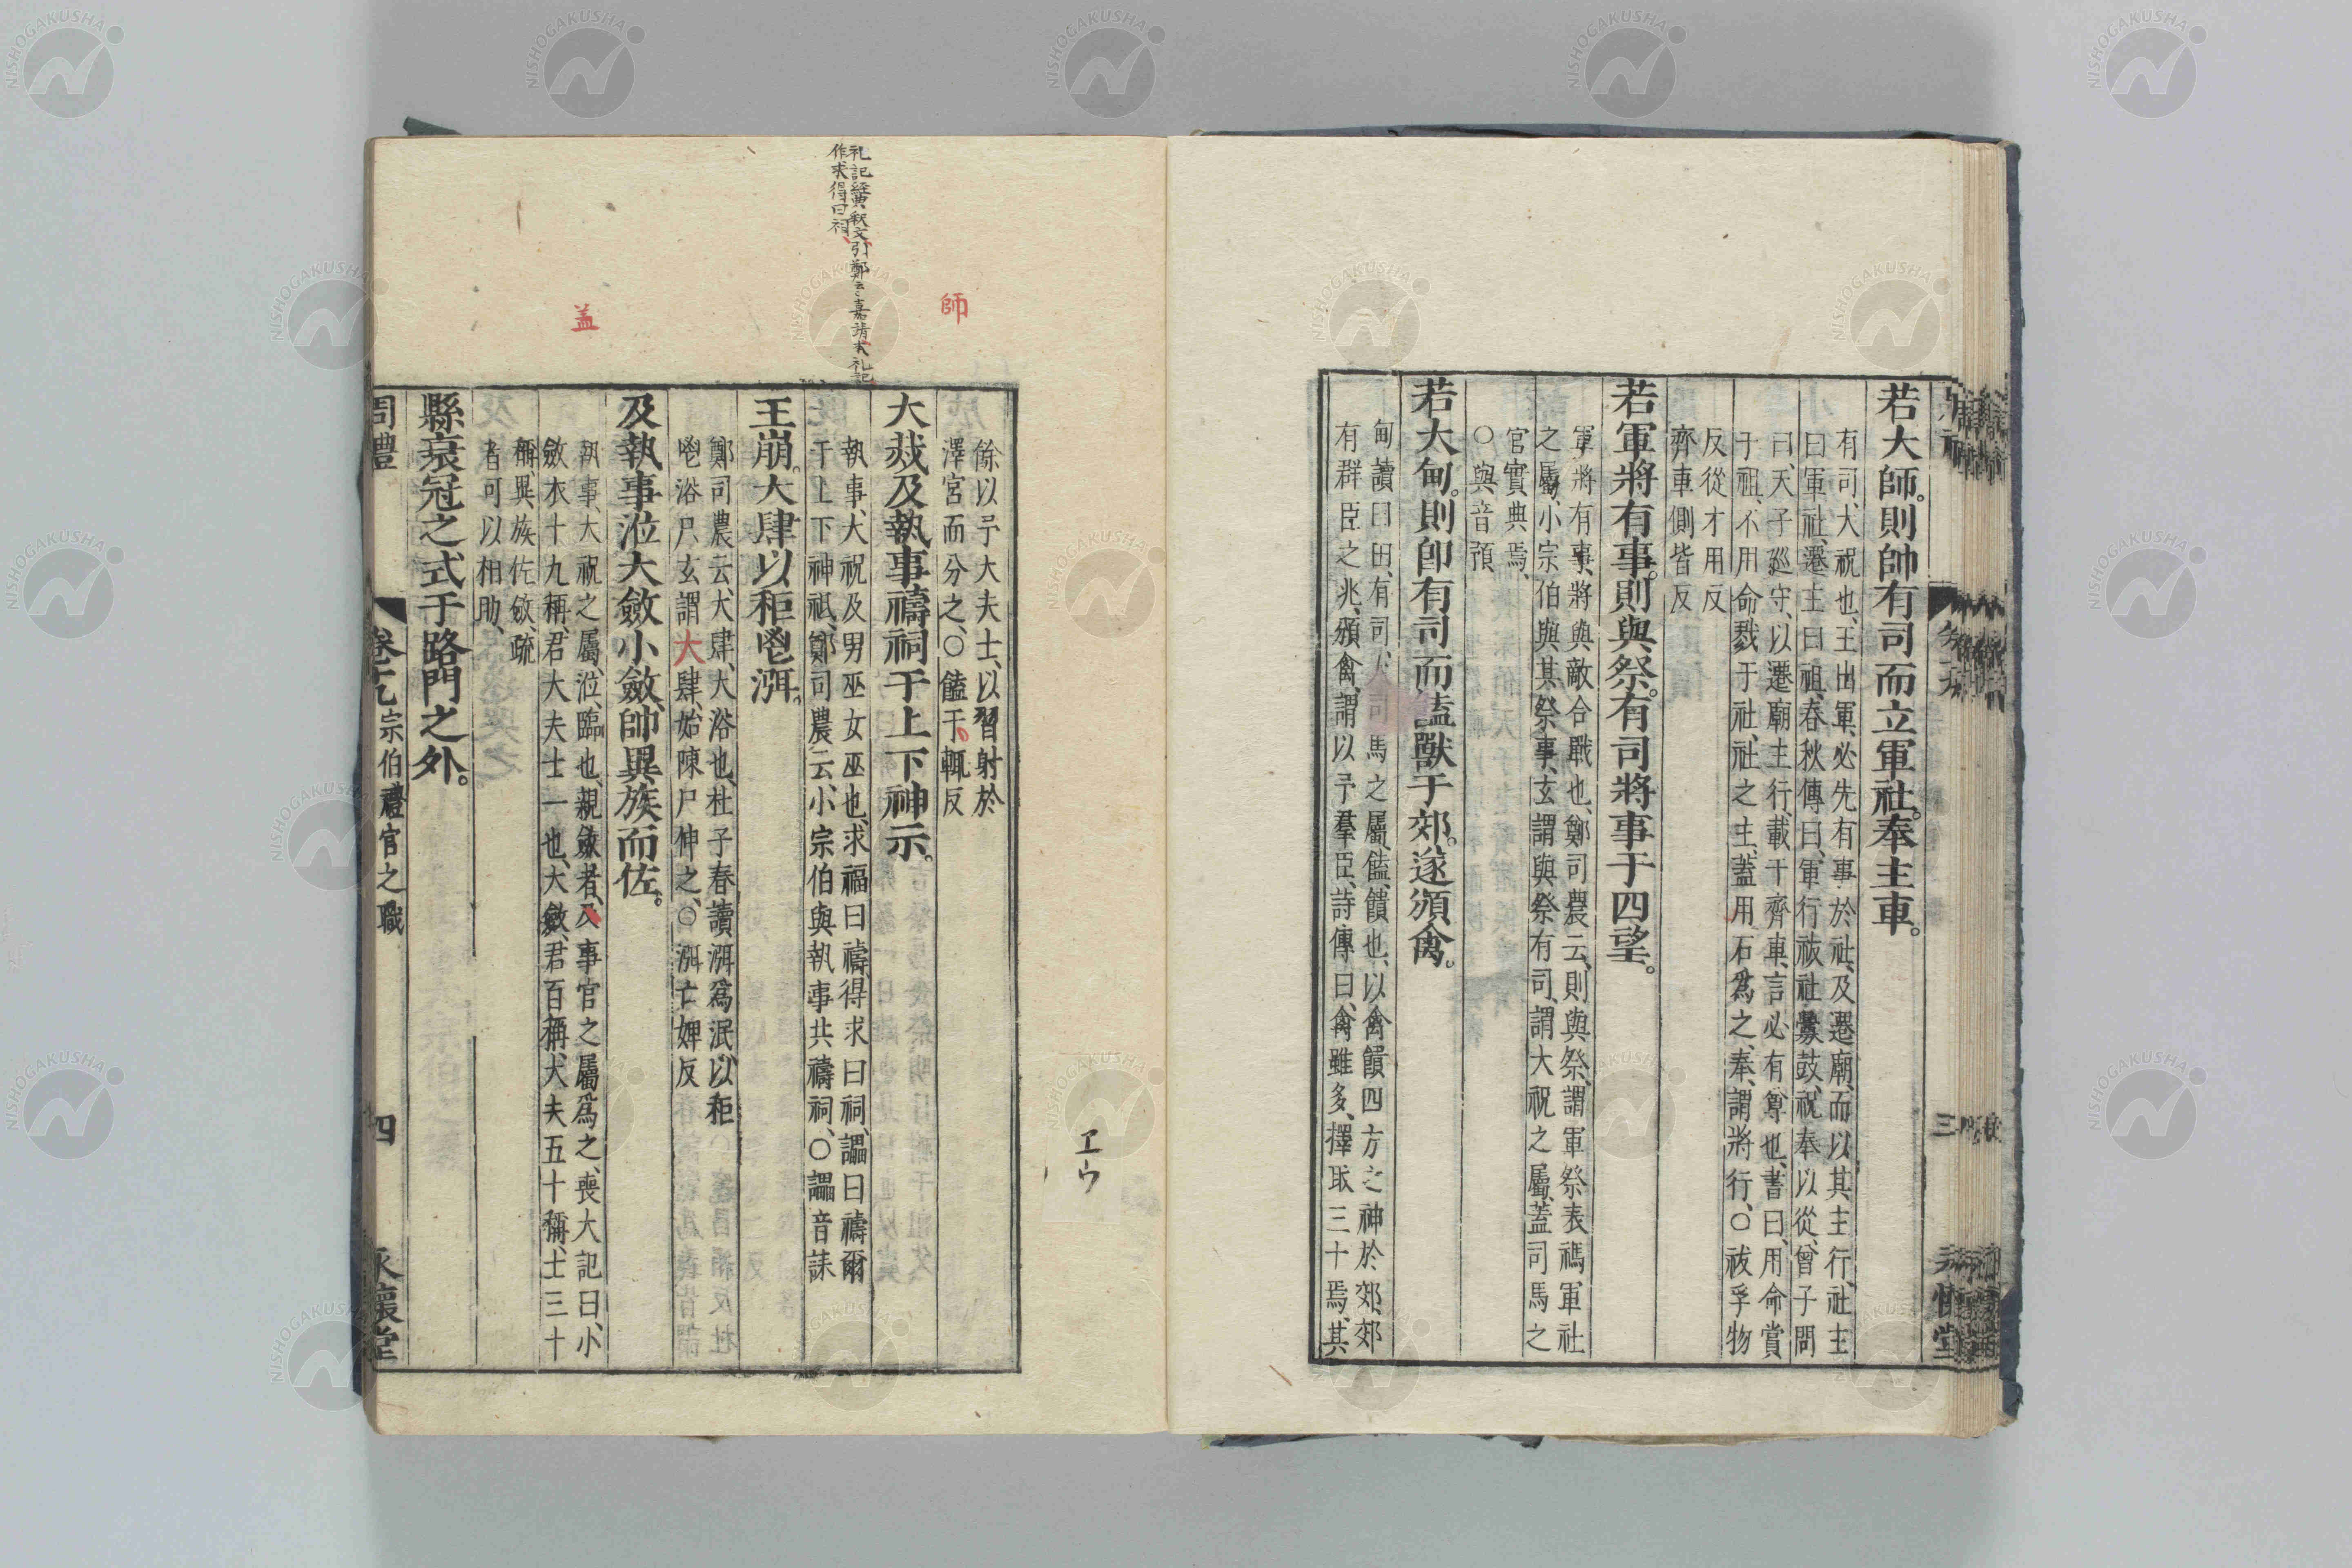 若大師。則帥有司而立軍社。奉主車。
有司、大祝也、王出軍、必先有事於社、及遷廟、而以其主行、社主
曰軍社、遷主曰祖、春秋傳曰、軍行祓社釁鼓、祝奉以從、曾子問
曰、天子巡守、以遷廟主行、載于齊車、言必有尊也、書曰、用命賞
于祖、不用命戮于社、社之主、蓋用石爲之、奉、謂將行、○祓孚物
反從才用反
齊車側皆反
若軍將有事。則與祭。有司將事于四望。
軍將有事、將與敵合戰也、鄭司農云、則與祭、謂軍祭表禡軍社
之屬、小宗伯與其祭事、玄謂與祭有司、謂大祝之屬、蓋司馬之
官實典焉、
○與音預
若大甸。則帥有司而饁獸于郊。遂頒禽。
甸讀曰田、有司、大司馬之屬、饁、饋也、以禽饋四方之神於郊、郊
有群臣之兆、頒禽、謂以予羣臣、詩傳曰、禽雖多、擇取三十焉、其
三
エウ
餘以予大夫士、以習射於
澤宮而分之、○饁于輒反
師
大烖及執事禱祠于上下神示。
執事、大祝及男巫女巫也、求福曰禱、得求曰祠、讄曰禱爾
于上下神祇、鄭司農云、小宗伯與執事共禱祠、○讄音誄
礼記經典釈文引鄭云嘉靖本礼記
作求得曰祠
王崩。大肆以秬鬯渳。
鄭司農云、大肆、大浴也、杜子春讀渳爲泯、以秬
鬯浴尸、玄謂大肆、始陳尸伸之、○渳亡婢反
及執事涖大斂小斂。帥異族而佐。
執事、大祝之屬、涖、臨也、親斂者、及事官之屬爲之、喪大記曰、小
斂衣十九稱、君大夫士一也、大斂、君百稱、大夫五十稱、士三十
稱、異族佐斂、疏
者可以相助、
盖
縣衰冠之式于路門之外。
周禮
卷十九 宗伯禮官之職
四
永懷堂